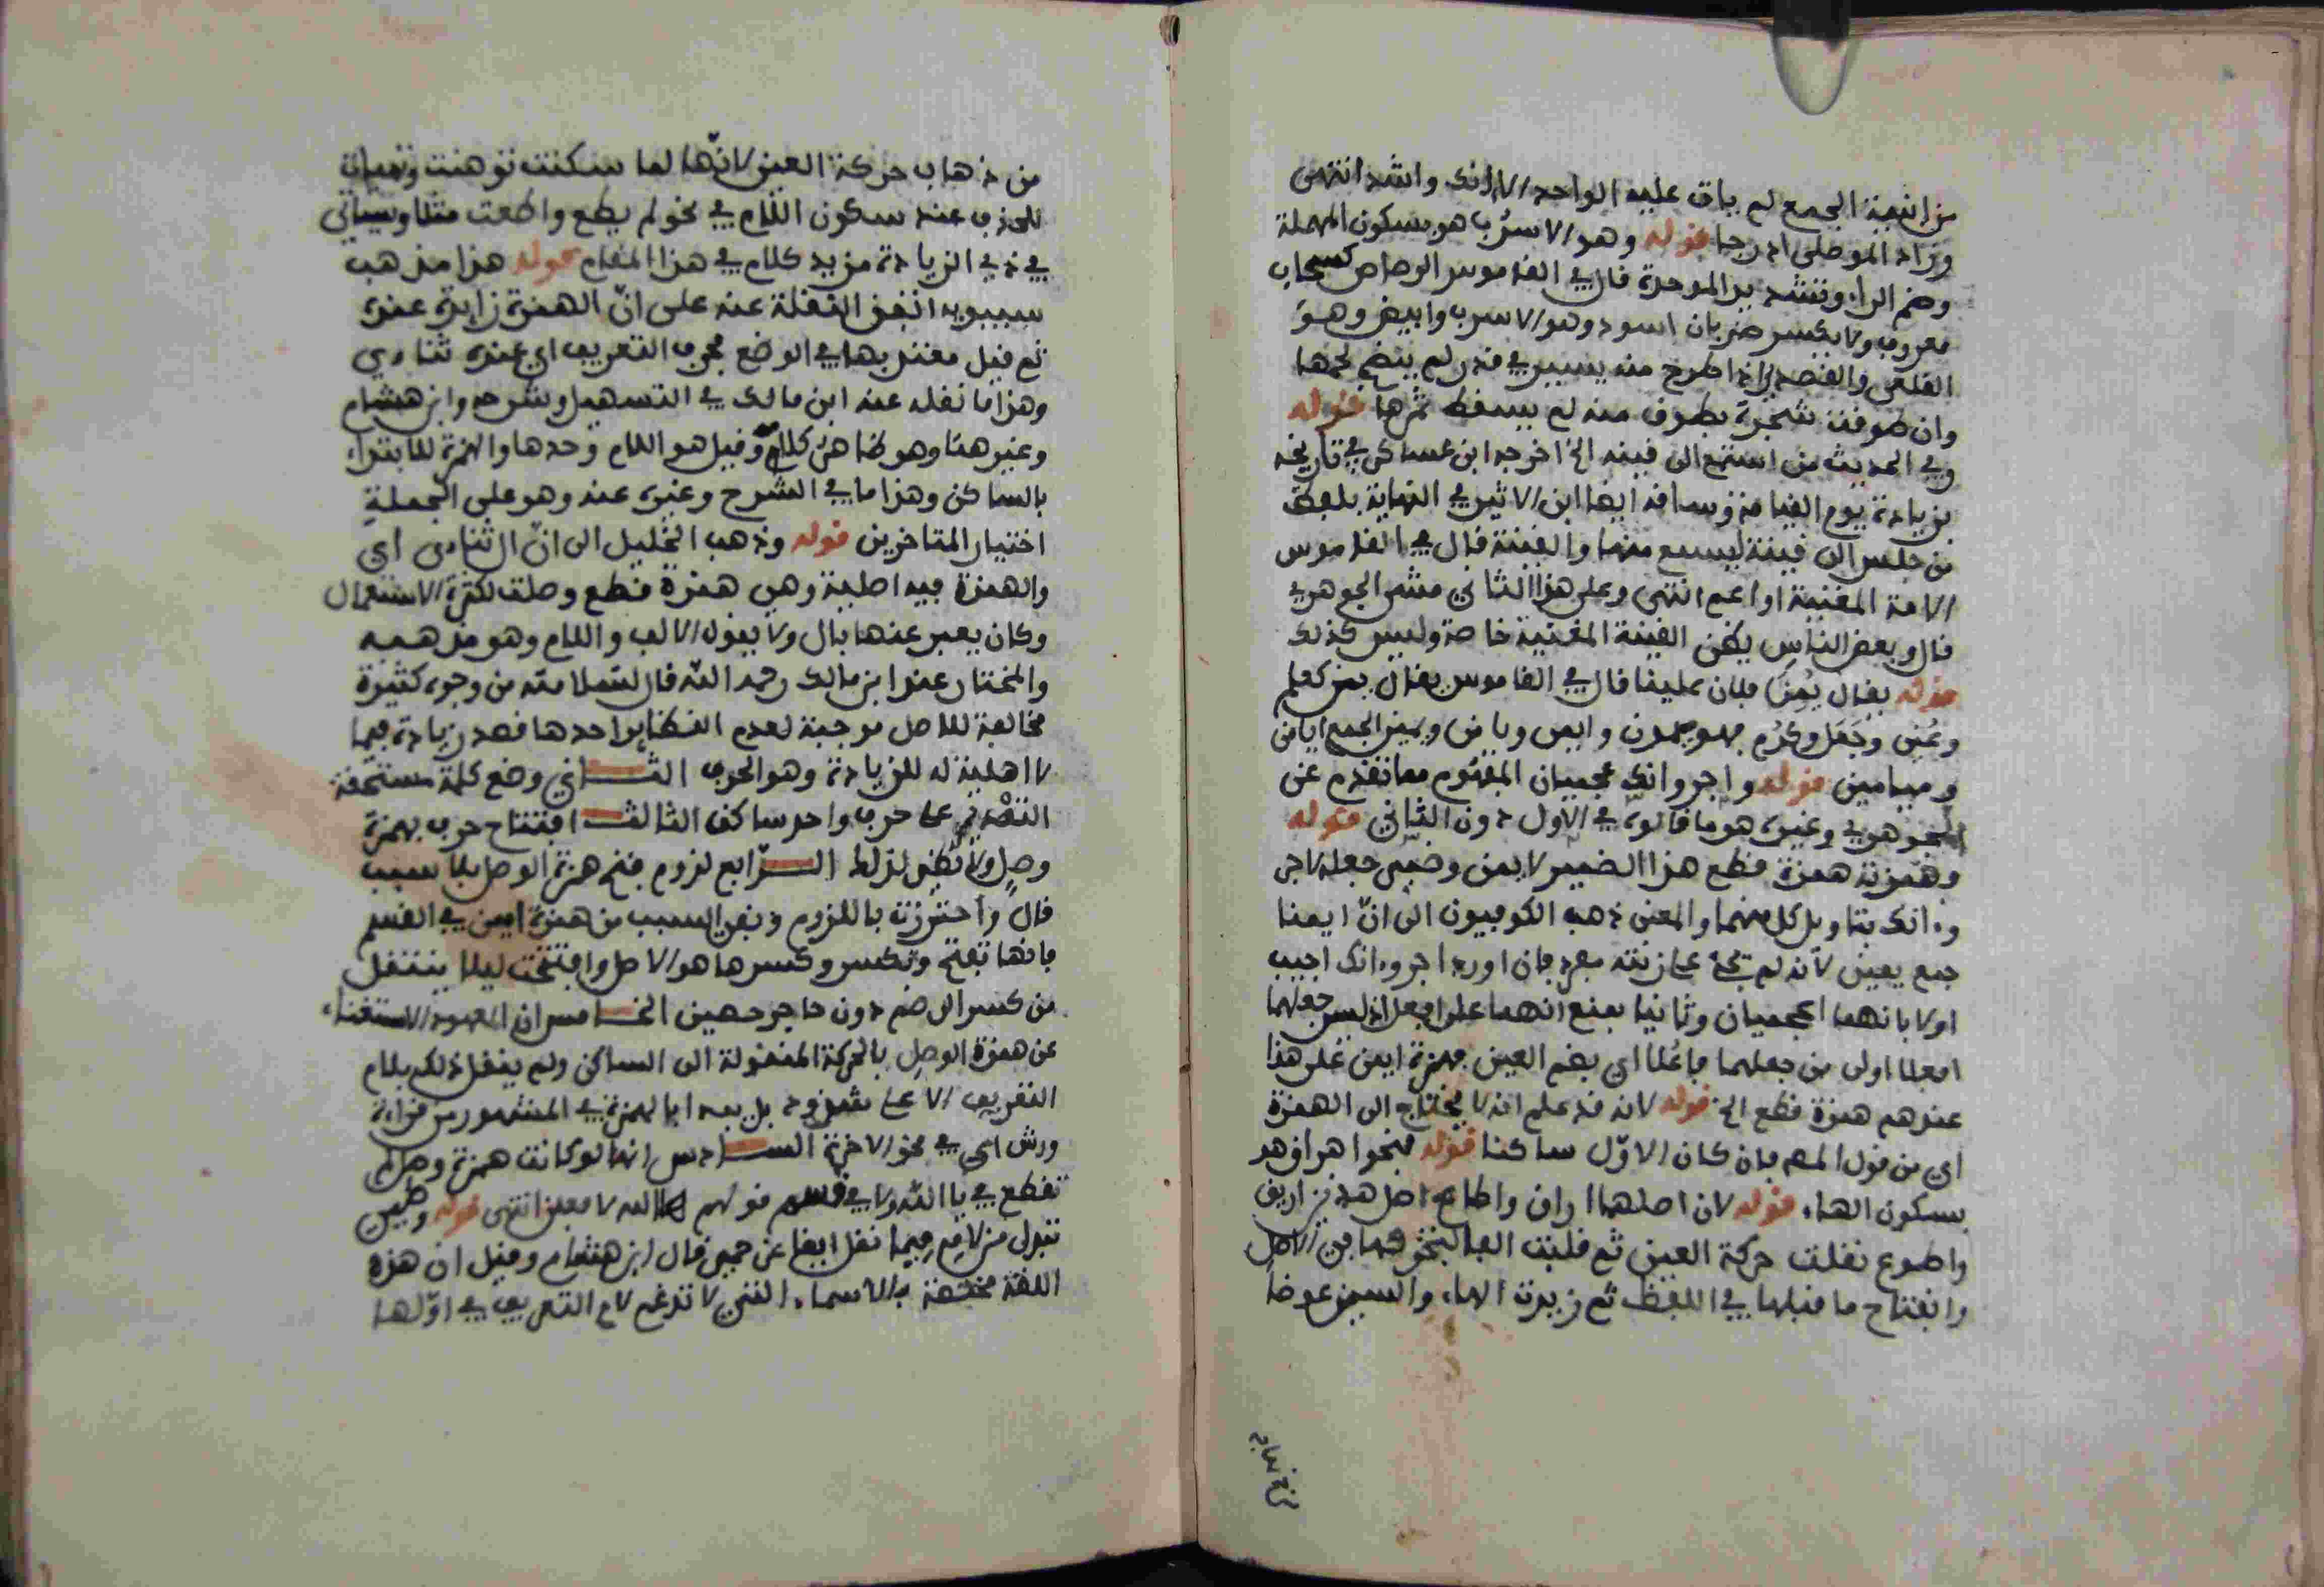 من ابنية الجمع لم يات عليه الواحد الا انك واشد انتهى
وزاد الموصلي ادرجا قوله وهو الاسرب هو بسكون المهملة
وضم الراء وتشديد الموحدة قال في القاموس الرصاص كسحاب
معروف ولا يكسر ضربان اسود وهو الاسرب وابيض وهو
القلعي والقصدير اذا طرح منه يسير في قدر لم ينضج لحمها
وان طوقت شجرة بطوق منه لم يسقط ثمرها قوله
وفي الحديث من استمع الى قينة الخ اخرجه ابن عساكر في تاريخه
بزيادة يوم القيامة وساقه ايضا ابن الاثير في النهاية بلفظ
من جلس الى قينة ليسمع منها والقينة قال في القاموس
الامة المغنية او اعم انتهى وعلى هذا الثاني مشى الجوهري
قال وبعض الناس يظن القينة المغنية خاصة وليس كذلك
قوله يقال يمن فلان علينا قال في القاموس يقال يمن كعلم
وعني وجعل وكرم فهو ميمون وايمن ويامن ويمين الجمع ايامن
وميامين قوله واجر وانك عجميان المفهوم مما تقدم عن
الجوهري وغيره هو ما قالوه في الاول دون الثاني قوله
وهمزته همزة قطع هذا الضمير لايمن وضمير جعله لاجر
وانك بتاويل كل منهما والمعنى ذهب الكوفيون الى ان ايمنا
جمع يمين لانه لم يجئ على زنته مفرد فان اورد اجر وانك اجيب
اولا بانهما اعجميان وثانيا بمنع انهما على افعل اذ ليس جعلهما
افعلا اولى من جعلهما فاعُلا اي بضم العين فهمزة ايمن على هذا
عندهم همزة قطع الخ قوله لانه قد علم انه لا يحتاج الى الهمزة
اي من قول المص فان كان الاول ساكنا قوله فنحو اهراق هو
بسكون الهاء قوله لان اصلهما اراق واطاع اصل هذين اريق
واطوع نقلت حركة العين ثم قلبت الفا لتحركها في الاصل
وانفتاح ما قبلها في اللفظ ثم زيدت الهاء والسين عوضا
من ذهاب حركة العين لانها لما سكنت توهنت وتهيات
للحذف عند سكون اللام في نحو لم يطع واطعت مثلا وسياتي
في ذي الزيادة مزيد كلام في هذا المقام قوله هذا مذهب
سيبويه اتفق النقلة عنه على ان الهمزة زايدة عنده
ثم قيل معتد بها في الوضع فحرف التعريف اي عنده ثنائي
وهذا ما نقله عنه ابن مالك في التسهيل وشرحه وابن هشام
وغيرهما وهو ظاهر كلامه وقيل هو اللام وحدها والهمزة للابتداء
بالساكن وهذا ما في الشرح وغيره عنه وهو على الجملة
اختيار المتاخرين قوله وذهب الخليل الى ان ال ثنائي اي
والهمزة فيه اصلية وهي همزة قطع وصلت لكثرة الاستعمال
وكان يعبر عنها بال ولا يقول الالف واللام وهو مذهبه
والمختار عند ابن مالك رحمه الله قال لسلامته من وجوه كثيرة
مخالفة للاصل موجبة لعدم النظاير احدها قصد زيادة فيما
لا اهلية له للزيادة وهو الحرف الثاني وضع كلمة مستحقة
التصدير على حرف واحد ساكن الثالث افتتاح حرف بهمزة
وصل ولا نظير لذلك الرابع لزوم فتح همزة الوصل بلا سبب
قال واحترزت باللزوم ونفي السبب من همزة ايمن في القسم
فانها تفتح وتكسر وكسرها هو الاصل وفتحت ليلا ينتقل
من كسر الى ضم دون حاجز حصين الخامس ان المعهود الاستغناء
عن همزة الوصل بالحركة المنقولة الى الساكن ولم يفعل ذلك بلام
التعريف الا على شذوذ بل يبدا بالهمزة في المشهور من قراءة
ورش اي في نحو الاخرة السادس انها لو كانت همزة وصل لم
تقطع في يا الله ولا في قولهم الله لافعلن انتهى قوله وطيئ
تبدل من لامه ميما نقل ايضا عن حمير قال ابن هشام وقيل ان هذه
اللغة مختصة بالاسماء التي لا تدغم لام التعريف في اولها